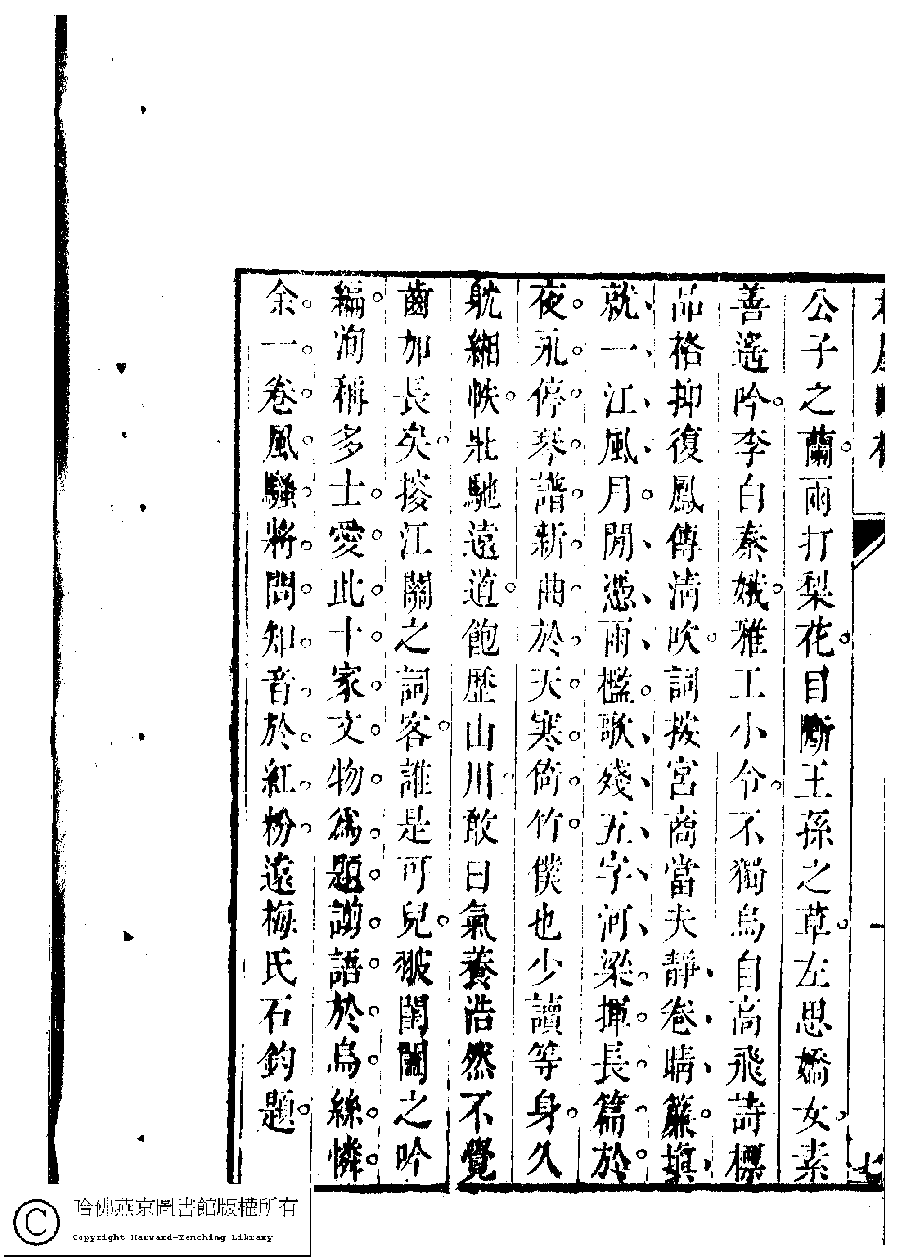 公子之蘭雨打梨花目斷王孫之草左思嬌女素
善遙吟李白秦娥雅工小令不獨烏自高飛詩標
品格抑復鳳傳清吹詞按宮商當夫靜卷晴簾填
就一江風月閒憑雨檻歌殘五字河梁揮長篇於
夜永停琴譜新曲於天寒倚竹僕也少讀等身久
耽緗帙壯馳遠道飽歷山川敢曰氣養浩然不覺
齒加長矣接江關之詞客誰是可兒披閨闥之吟
編洵稱多士愛此十家文物爲題謝語於烏絲憐
余一卷風騷將問知音於紅粉遠梅氏石鈞題
哈佛燕京圖書館版權所有
Copyright Harvard-Yenching Library